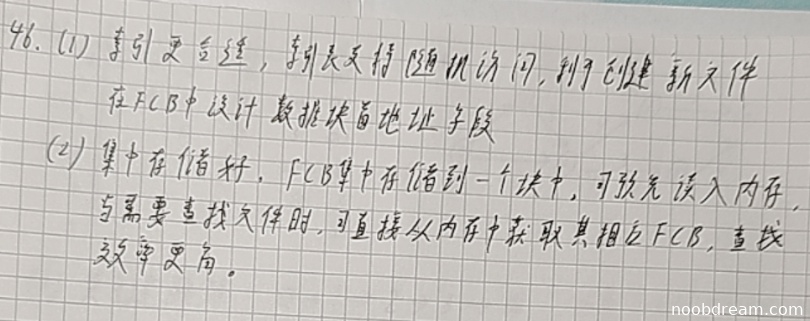 46. (1) 索引更合适，索引表支持随机访问，利于创建新文件
在FCB中设计数据块首地址字段
(2) 集中存储好，FCB集中存储到一个块中，可预先读入内存，
当需要查找文件时，可直接从内存中获取其相应FCB，查找
效率更高。
noobdream.com